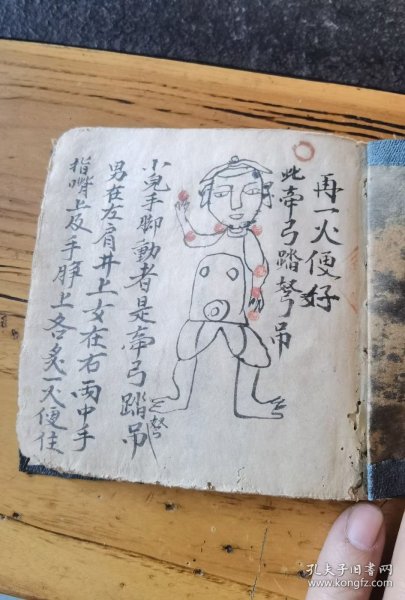 再一火便好
此牽弓踏弩吊
小兒手脚動者是牽弓踏吊
弩
男在左肩井上女在右兩中手
指嘴上及手腕上各炙一火便住
孔夫子旧书网
www.kongfz.com